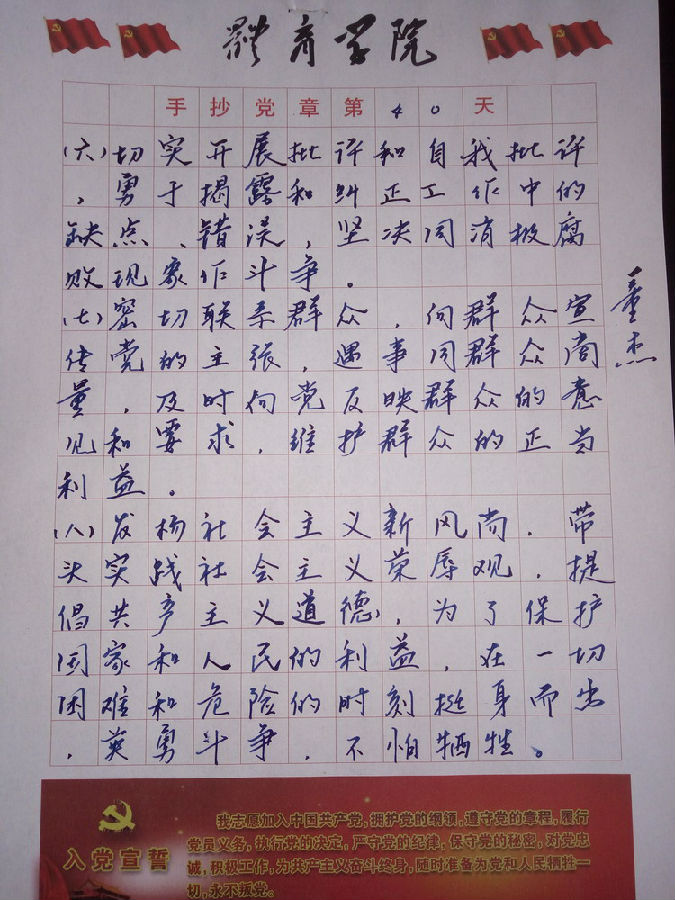 體育学院
手抄党章第40天
(六)切实开展批评和自我批评
，勇于揭露和纠正工作中的
缺点、错误，坚决同消极腐
败现象作斗争。
(七)密切联系群众，向群众宣
传党的主张，遇事同群众商
量，及时向党反映群众的意
见和要求，维护群众的正当
利益。
(八)发扬社会主义新风尚，带
头实践社会主义荣辱观，提
倡共产主义道德，为了保护
国家和人民的利益，在一切
困难和危险的时刻挺身而出
，英勇斗争，不怕牺牲。
董杰
入党宣誓
我志愿加入中国共产党，拥护党的纲领，遵守党的章程，履行
党员义务，执行党的决定，严守党的纪律，保守党的秘密，对党忠
诚，积极工作，为共产主义奋斗终身，随时准备为党和人民牺牲一
切，永不叛党。